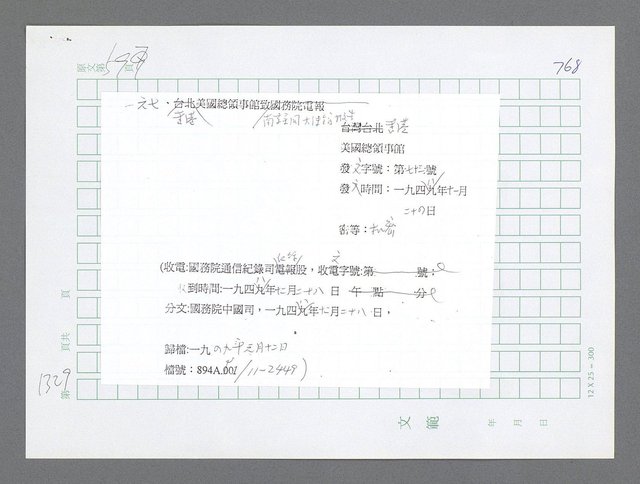 原文第 頁
768
一六七、台北美國總領事館致國務院電報
香港
台灣台北 香港
美國總領事館
發文字號：第七十二號
發文時間：一九四八年十一月
二十四日
密等：機密
(收電:國務院通信紀錄司電報股，收文字號:第 號：
收到時間:一九四八年十二月二十八日 午 點 分
分文:國務院中國司，一九四八年十二月二十八日，
歸檔:一九四九年三月十二日
檔號：894A.00/11-2448)
第1329頁共 頁
12 X 25 = 300
文範
年 月 日